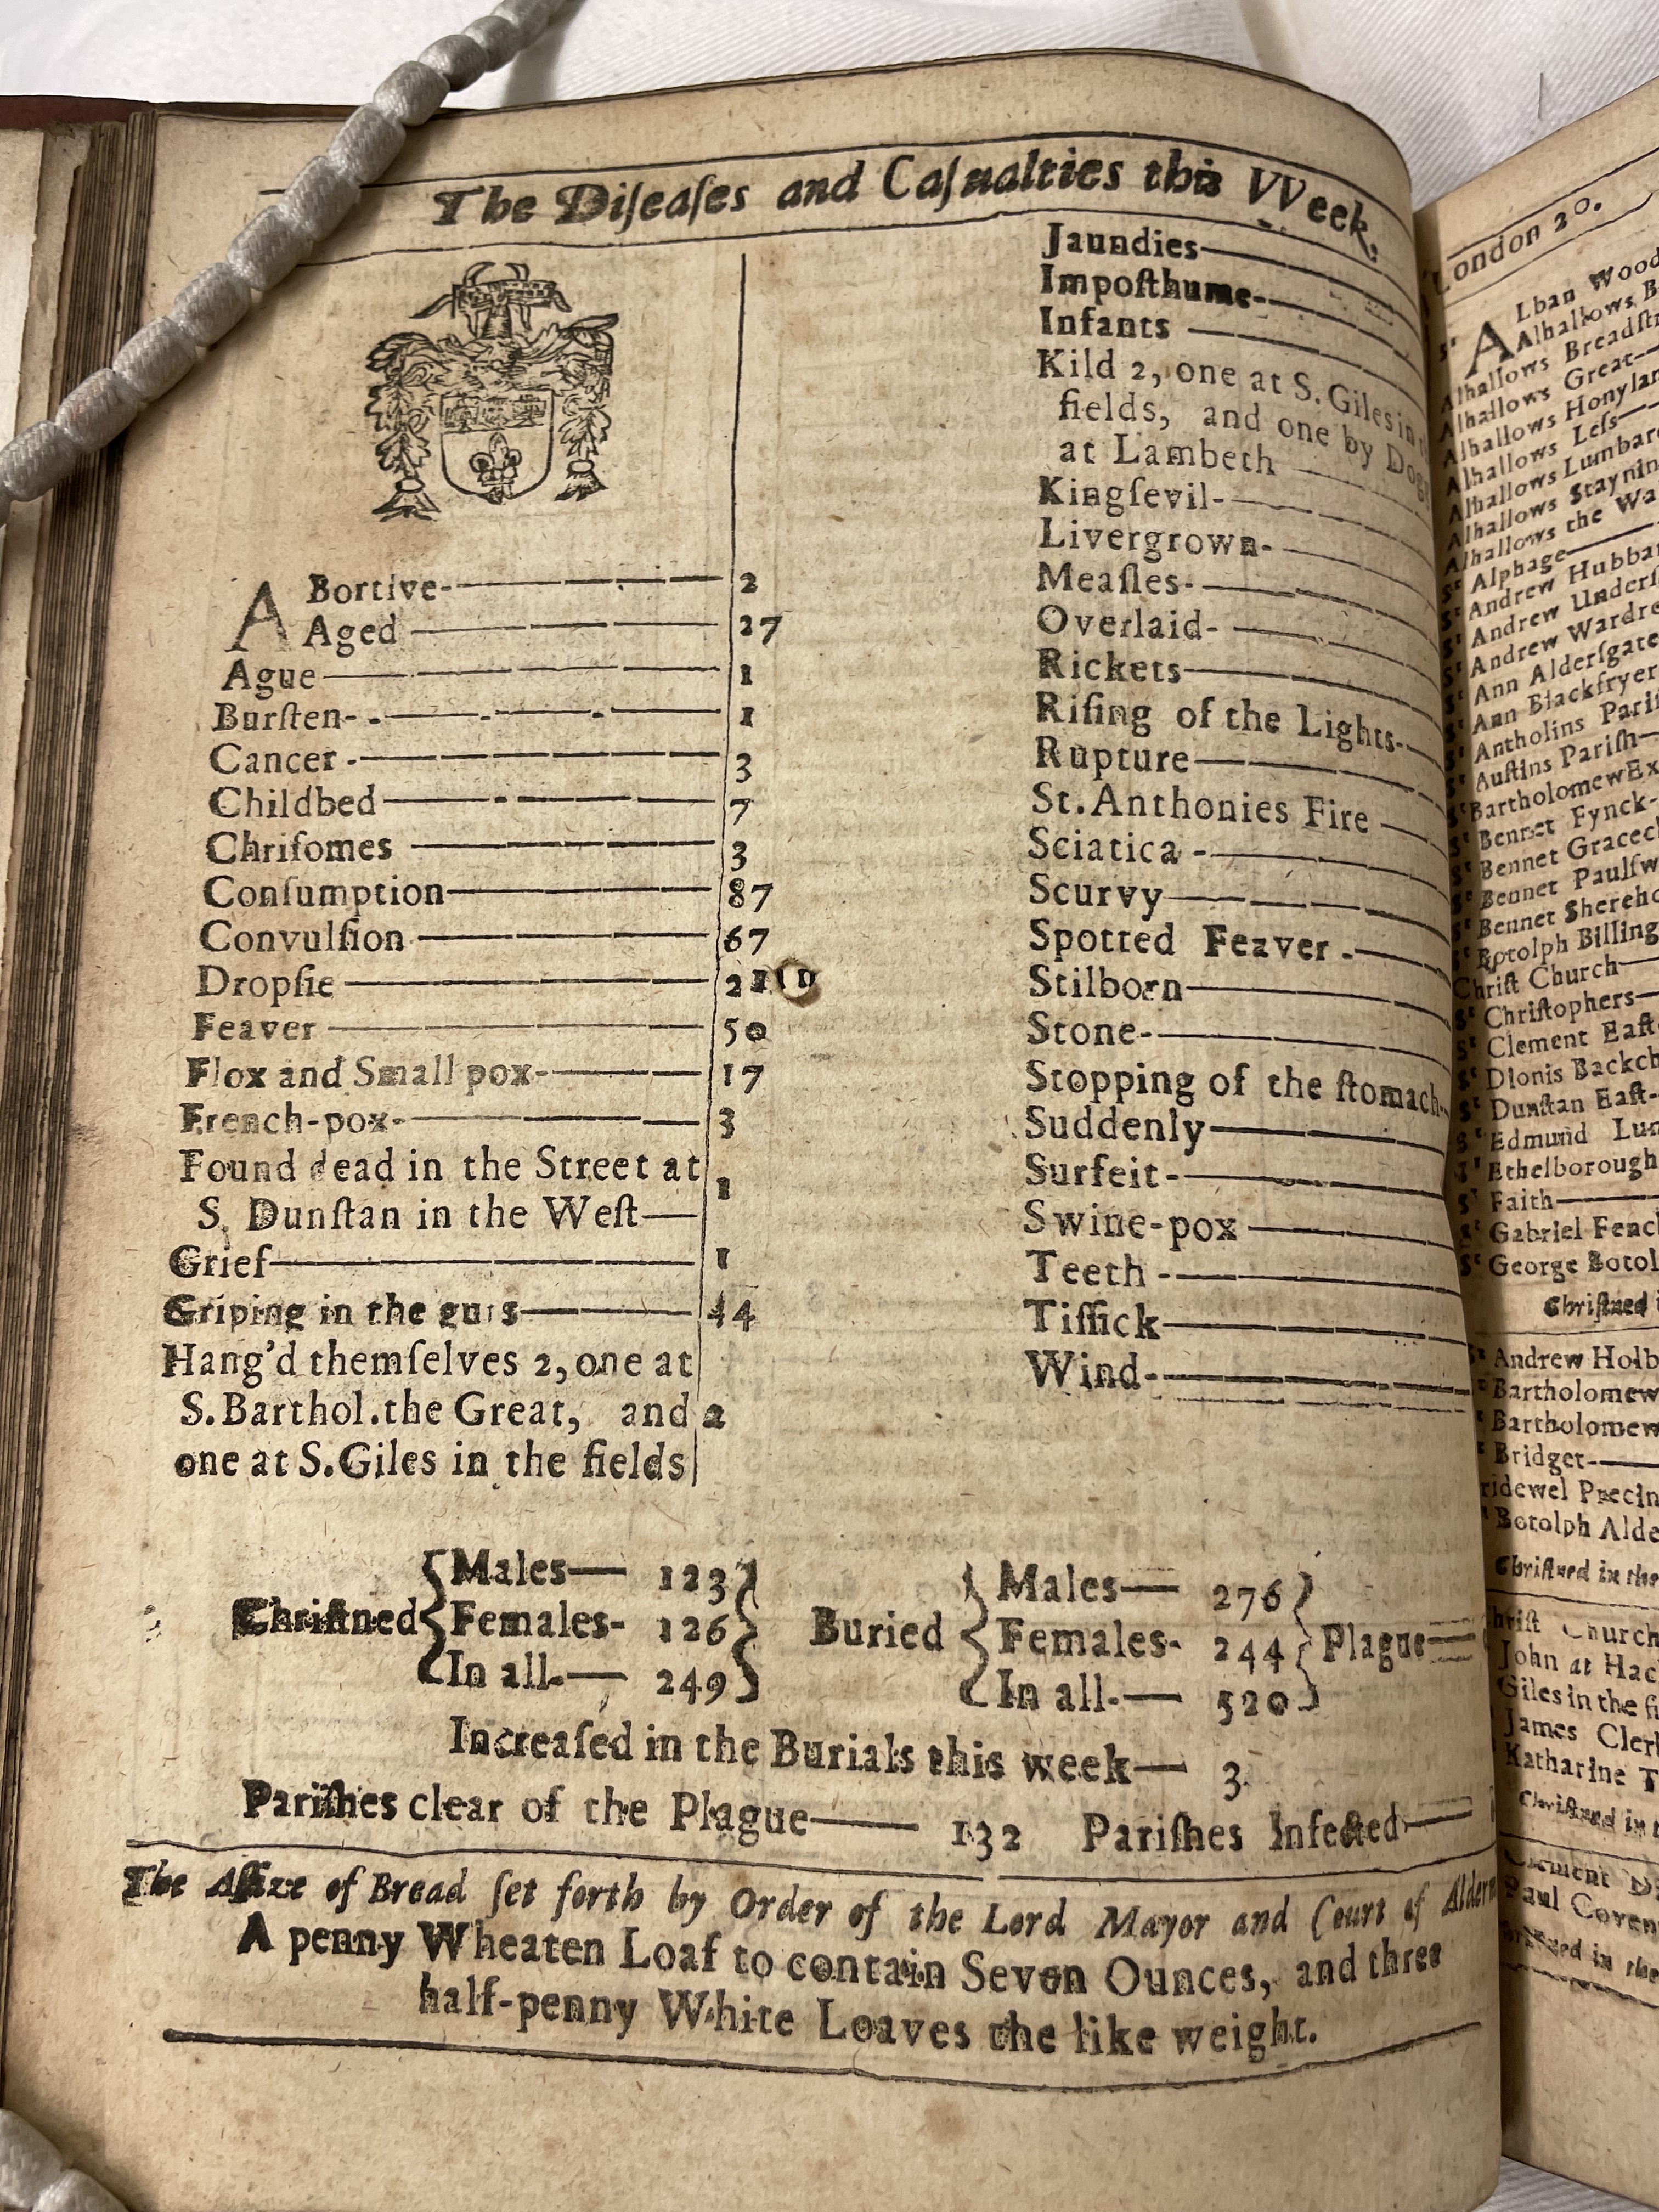 The Diſeaſes and Caſualties this VVeek.
ABortive 2
Aged 27
Ague 1
Burſten 1
Cancer 3
Childbed 7
Chriſomes 3
Conſumption 87
Convulſion 67
Dropſie
Feaver 50
Flox and Small pox 17
French-pox 3
Found dead in the Street at
S. Dunſtan in the Weſt 1
Grief 1
Griping in the guts 44
Hang'd themſelves 2, one at
S. Barthol. the Great, and 2
one at S. Giles in the fields
Jaundies
Impoſthume
Infants
Kild 2, one at S. Giles in
fields, and one by
at Lambeth
Kingſevil
Livergrown
Meaſles
Overlaid
Rickets
Riſing of the Lights
Rupture
St. Anthonies Fire
Sciatica
Scurvy
Spotted Feaver
Stilborn
Stone
Stopping of the ſtomach
Suddenly
Surfeit
Swine-pox
Teeth
Tiſſick
Wind
Chriſtned
Males 123
Females 126
In all 249
Buried
Males 276
Females 244
In all 520
Plague
Increaſed in the Burials this week 3
Pariſhes clear of the Plague 132 Pariſhes Infected
The Aſſize of Bread ſet forth by Order of the Lord Mayor and Court of
A penny Wheaten Loaf to contain Seven Ounces, and three
half-penny White Loaves the like weight.
London 20.
ALban
Alhallows
Alhallows
Alhallows Great
Alhallows
Alhallows Leſs
Alhallows
Alhallows
Alhallows the
Sᵗ Alphage
Sᵗ Andrew
Sᵗ Andrew
Sᵗ Andrew
Sᵗ Ann Alderſgate
Sᵗ Ann
Sᵗ Antholins
Sᵗ Auſtins Pariſh
Sᵗ Bartholomew
Sᵗ Bennet Fynck
Sᵗ Bennet
Sᵗ Bennet
Sᵗ Bennet
Sᵗ Botolph
Chriſt Church
Sᵗ Chriſtophers
Sᵗ Clement
Sᵗ Dionis
Sᵗ Dunſtan Eaſt
Sᵗ Edmund
Sᵗ Ethelborough
Sᵗ Faith
Sᵗ Gabriel
Sᵗ George
Chriſtned
Andrew
Bartholomew
Bartholomew
Bridget
Botolph
Chriſtned in the
Church
John at
Giles in the
James
Katharine
Chriſtned in
Clement
Paul
in the